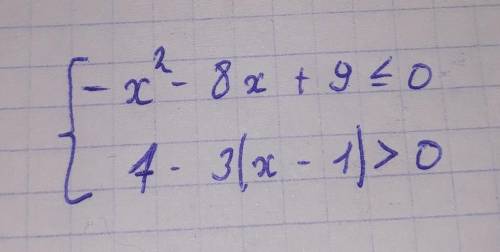 { -x² - 8x + 9 ≤ 0
4 - 3(x - 1) > 0